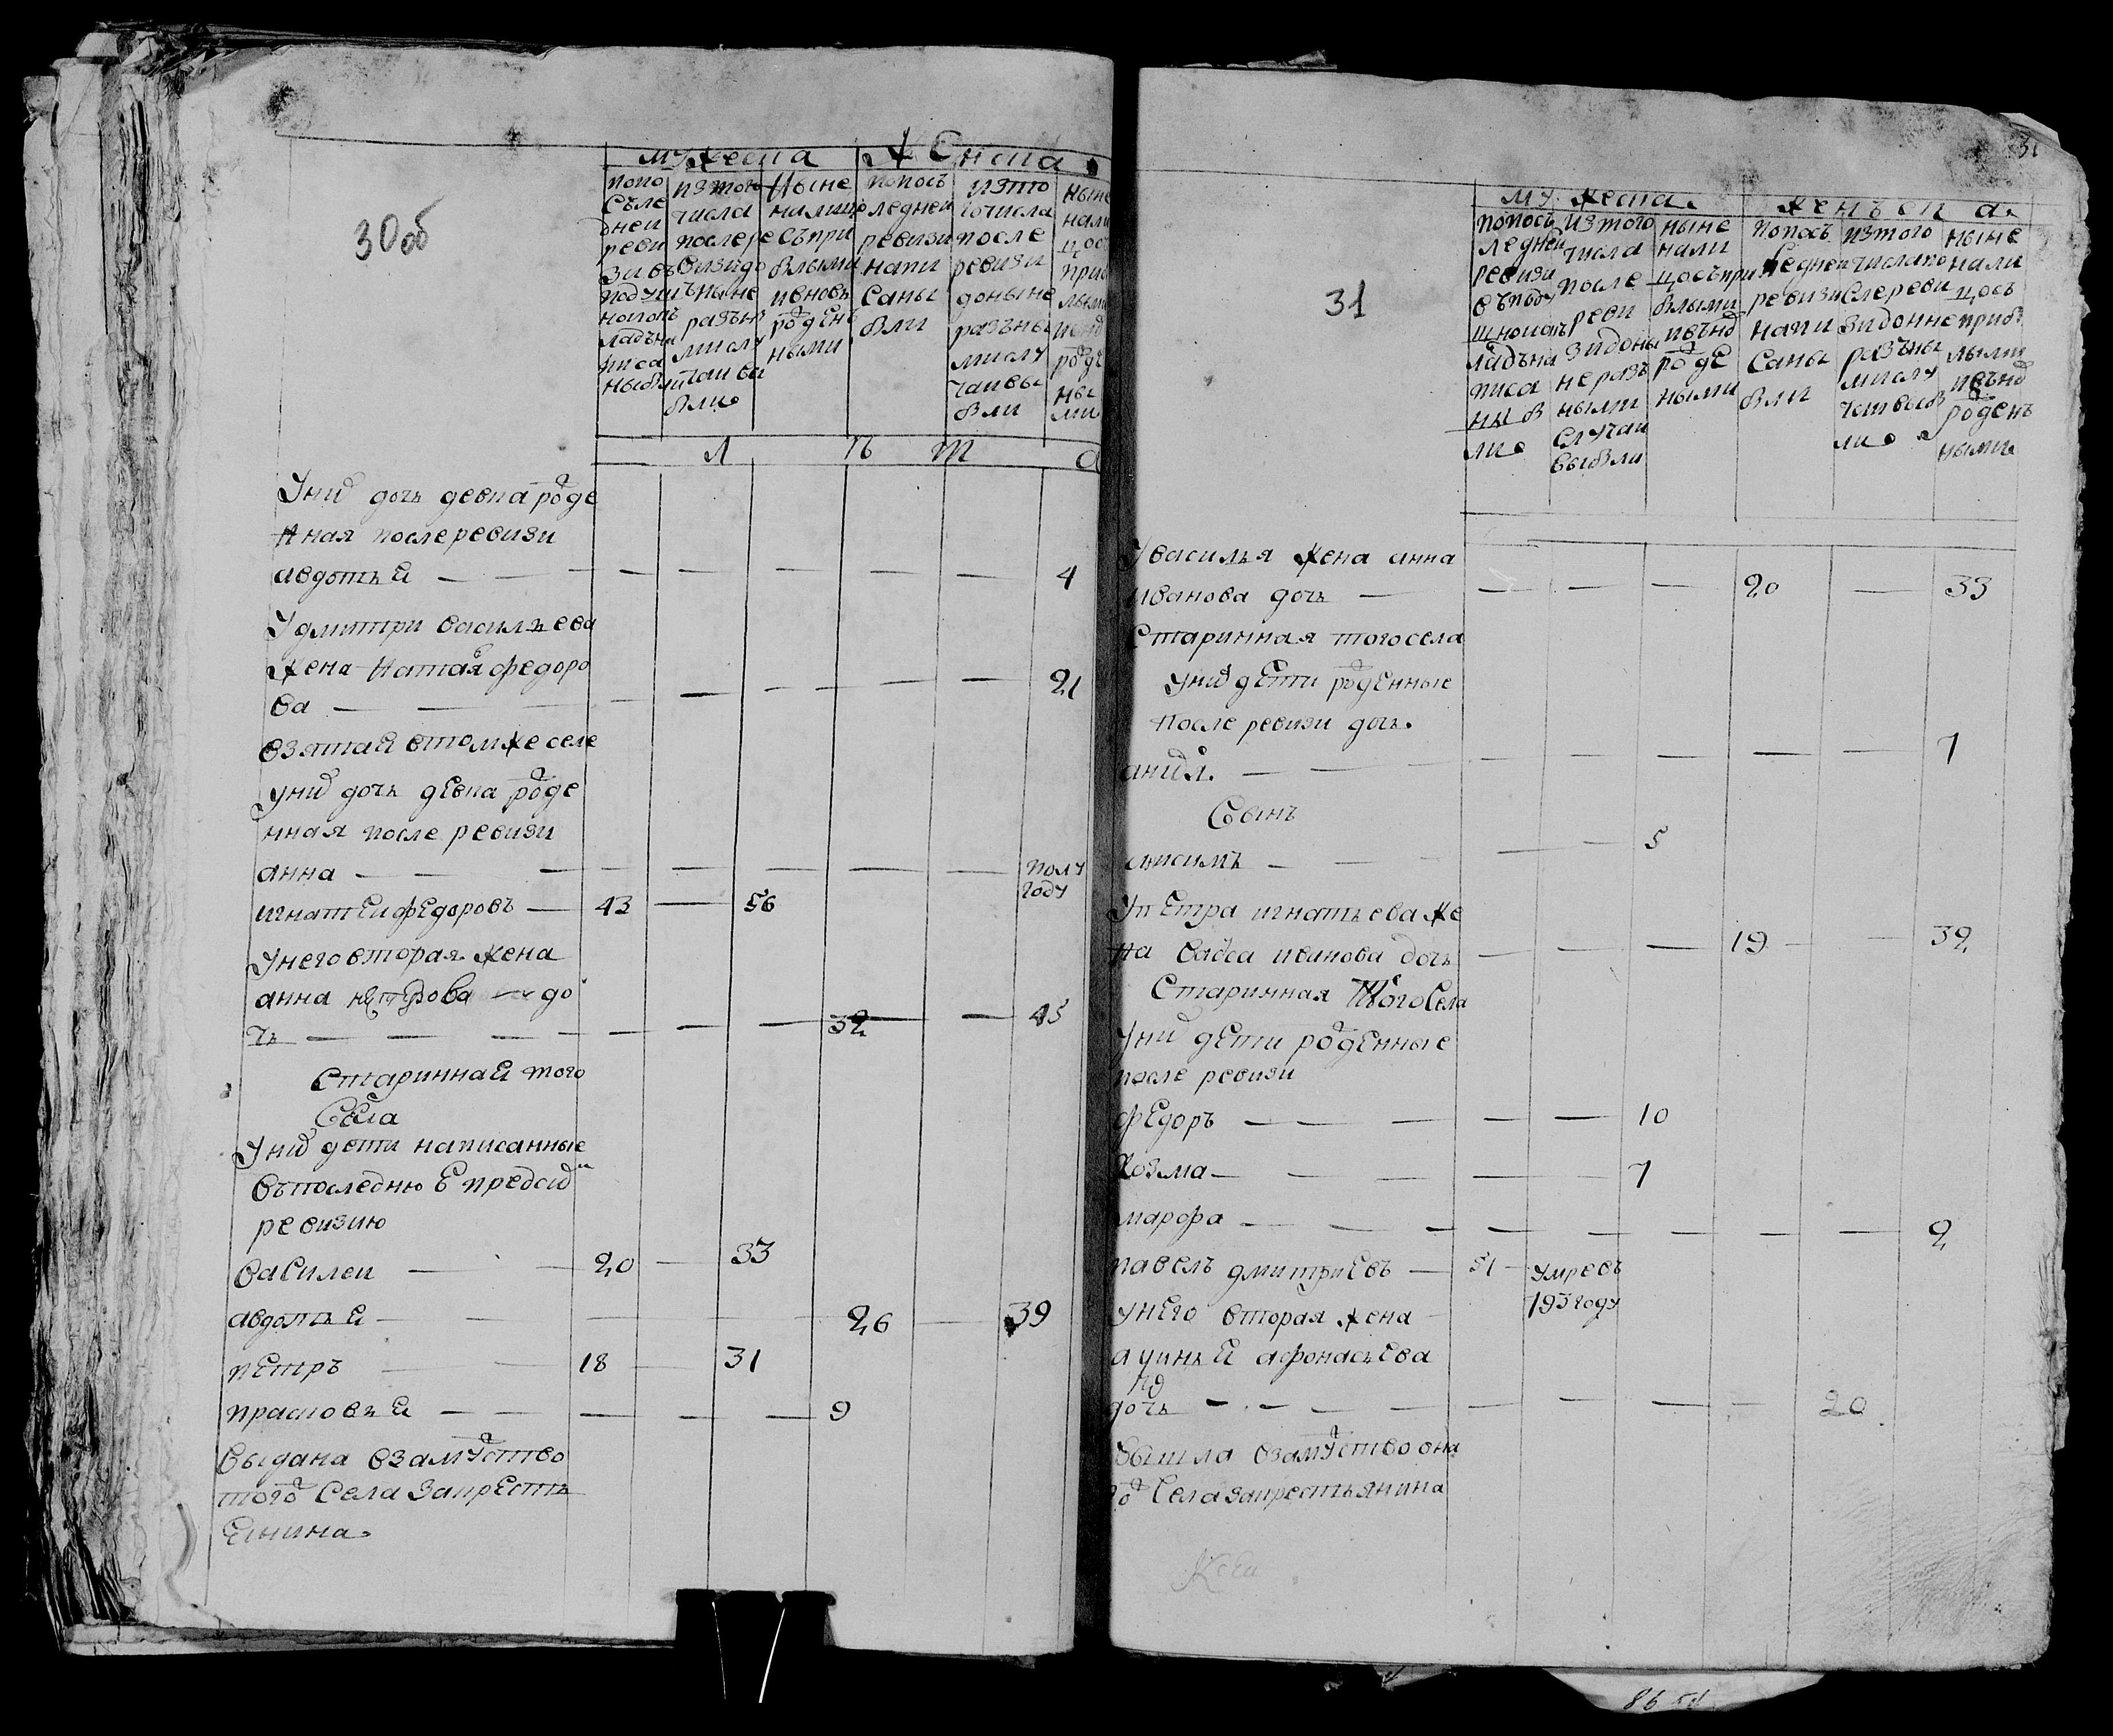 30 об
мужеска женска
попо съле дней реви зи въ подуш номъ
изтого числа после ре визи до ныне разъны
ныне налицо съ при былыми и вновь рожденъ ными
попосъ ледней ревизи напи саны были
изто гочисла после ревизи до ныне разъны ми случаи вы были
ныне нали цось при
л ѣ т а
у них дочь девка рожде
нная после ревизи
авдотья 4
у дмитри васильева
жена наталя федоро
ва 21
взятая в том же селе
у них дочь девка рожде
нная после ревизи
анна полу году
игнатей федоровъ 43 56
у него вторая жена
анна до
чь 32 45
старинная того
села
у них дети написанные
въ последнюю пред сим
ревизию
василеи 20 33
авдотья 26 39
петръ 18 31
прасковья 9
выдана взамужство
того ж села за кресть
янина
31
31
мужеска женъска
попосъ ледней ревизи въ поду шномъ
изтого числа после реви зи до ны не разъ ными случаи выбыли
ныне нали цось при былыми и въно рожде ными
попосъ ледней ревизи напи саны были
изтого числа по сле реви зи до нне разъны ми случ
ныне нали цось при былыми и въно рожденъ ными
у василья жена анна
иванова дочь 20 33
старинная того села
у них дети рожденные
после ревизи дочь
7
сынъ
анисимъ 5
у петра игнатьева же
на васса иванова дочь 19 32
старинная того ж села
у них дети рожденные
после ревизи
федоръ 10
козма 7
марфа 2
павелъ дмитриевъ 51 умре въ
793 году
у него вторая жена
акулинья афонасьева
дочь 20
вышла взамужство она
го ж села за крестьянина